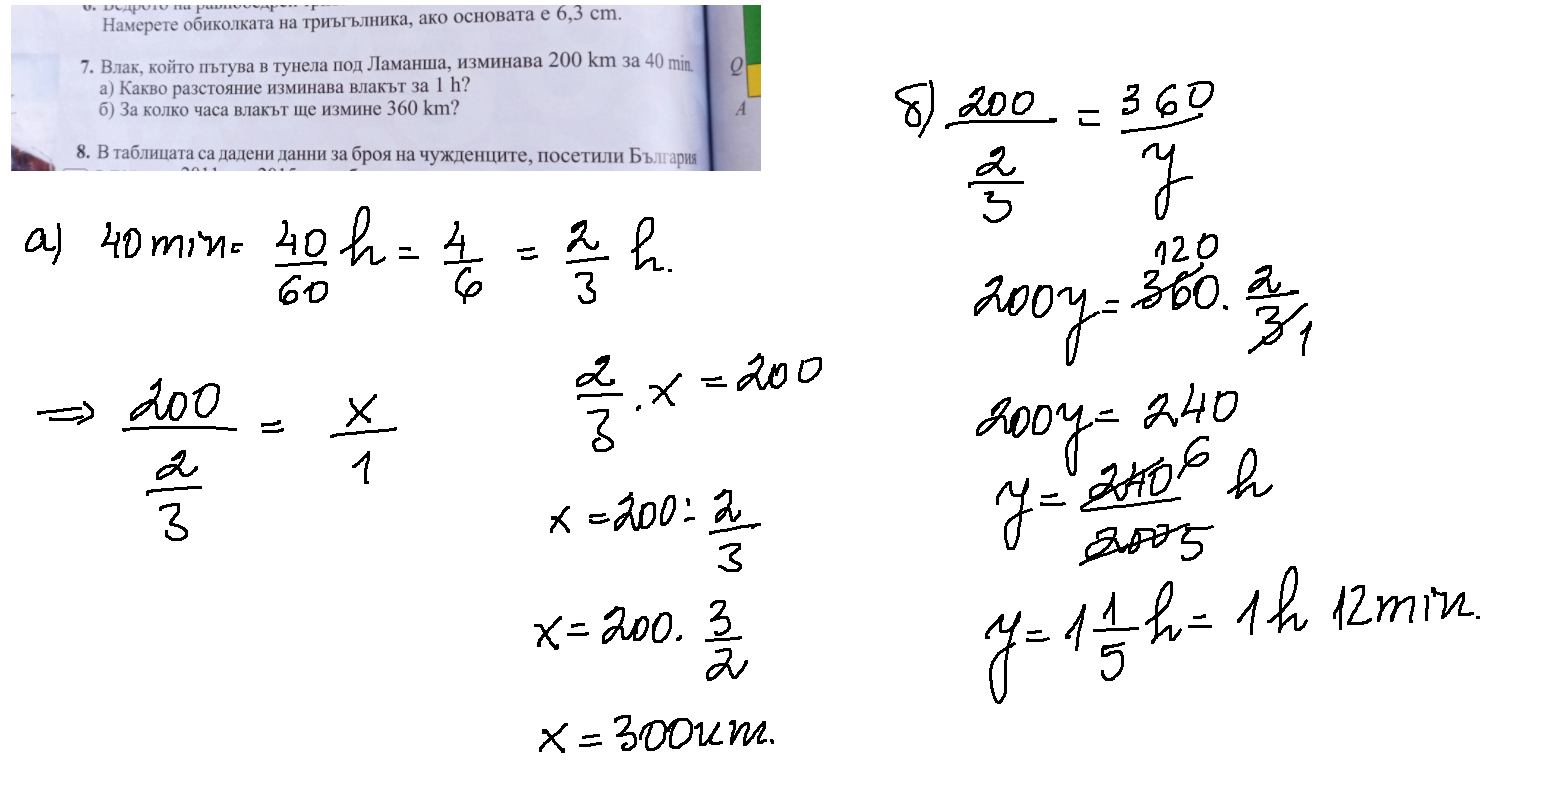 Намерете обиколката на триъгълника, ако основата е 6,3 cm.
7. Влак, който пътува в тунела под Ламанша, изминава 200 km за 40 min.
а) Какво разстояние изминава влакът за 1 h?
б) За колко часа влакът ще измине 360 km?
Q
A
8. В таблицата са дадени данни за броя на чужденците, посетили България
а) 40 min = 40/60 h = 4/6 = 2/3 h.
⇒ 200/(2/3) = x/1
2/3 . x = 200
x = 200 : 2/3
x = 200 . 3/2
x = 300 km.
б) 200/(2/3) = 360/y
120
200y = 360 . 2/3 1
200y = 240
y = 240/200 6/5 h
y = 1 1/5 h = 1 h 12 min.